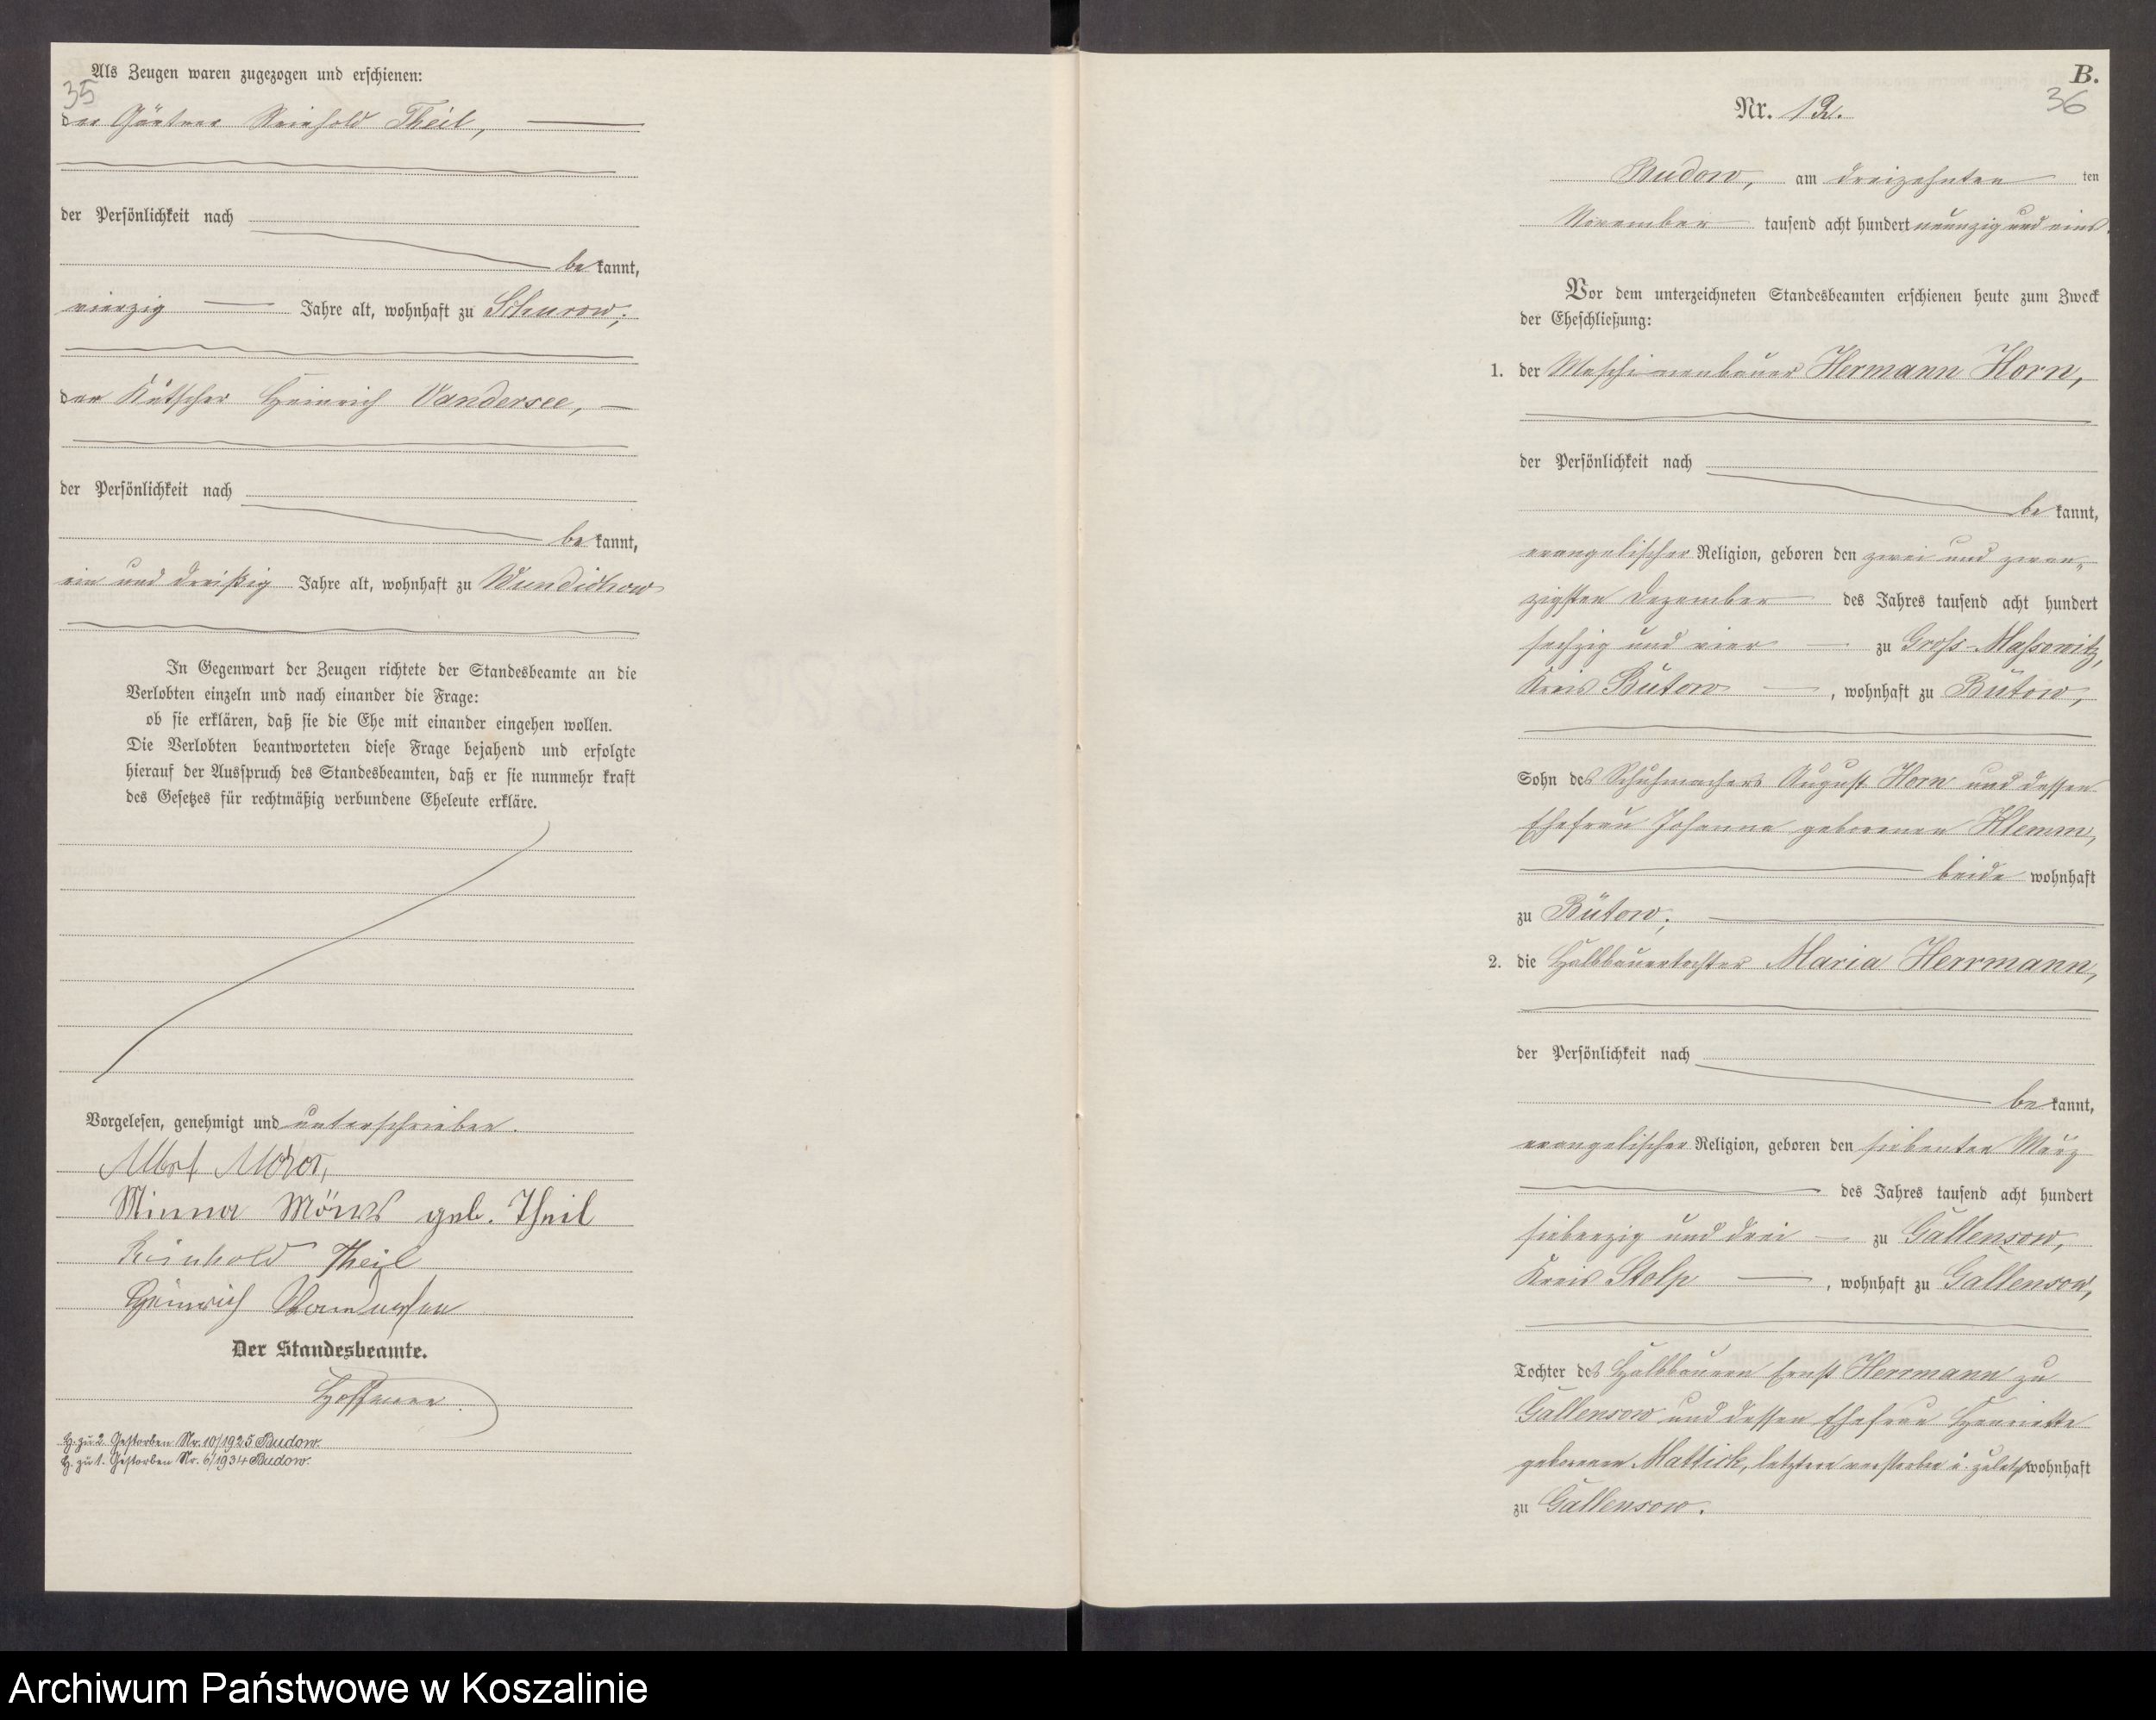 Als Zeugen waren zugezogen und erschienen:
35
der Gärtner Reinhold Theil,
der Persönlichkeit nach
bekannt,
vierzig Jahre alt, wohnhaft zu Schurow;
der Kutscher Heinrich Vandersee,
der Persönlichkeit nach
bekannt,
ein und dreißig Jahre alt, wohnhaft zu Wundichow
In Gegenwart der Zeugen richtete der Standesbeamte an die
Verlobten einzeln und nach einander die Frage:
ob sie erklären, daß sie die Ehe mit einander eingehen wollen.
Die Verlobten beantworteten diese Frage bejahend und erfolgte
hierauf der Ausspruch des Standesbeamten, daß er sie nunmehr kraft
des Gesetzes für rechtmäßig verbundene Eheleute erkläre.
Vorgelesen, genehmigt und unterschrieben.
Minna Mörws geb. Theil
Reinhold Theil
Heinrich
Der Standesbeamte.
H. zu 2. Gestorben Nr. 10/1925 Budow.
H. zu 1. Gestorben Nr. 6/1934 Budow.
B.
36
Nr. 12.
Budow, am dreizehnten ten
November tausend acht hundert neunzig und eins.
Vor dem unterzeichneten Standesbeamten erschienen heute zum Zweck
der Eheschließung:
1. der Maschinenbauer Hermann Horn,
der Persönlichkeit nach
bekannt,
evangelischer Religion, geboren den zwei und zwan-
zigsten Dezember des Jahres tausend acht hundert
sechzig und vier zu Gross-Massowitz,
Kreis Bütow, wohnhaft zu Bütow,
Sohn des Schuhmachers August Horn und dessen
Ehefrau Johanna geborenen Klemm,
beide wohnhaft
zu Bütow;
2. die Halbbauertochter Maria Herrmann,
der Persönlichkeit nach
bekannt,
evangelischer Religion, geboren den siebenten März
des Jahres tausend acht hundert
siebenzig und drei zu Gallensow,
Kreis Stolp, wohnhaft zu Gallensow,
Tochter des Halbbauern Ernst Herrmann zu
Gallensow und dessen Ehefrau Henriette
geborenen Mattick, letztere verstorben u. zuletzt wohnhaft
zu Gallensow.
Archiwum Państwowe w Koszalinie